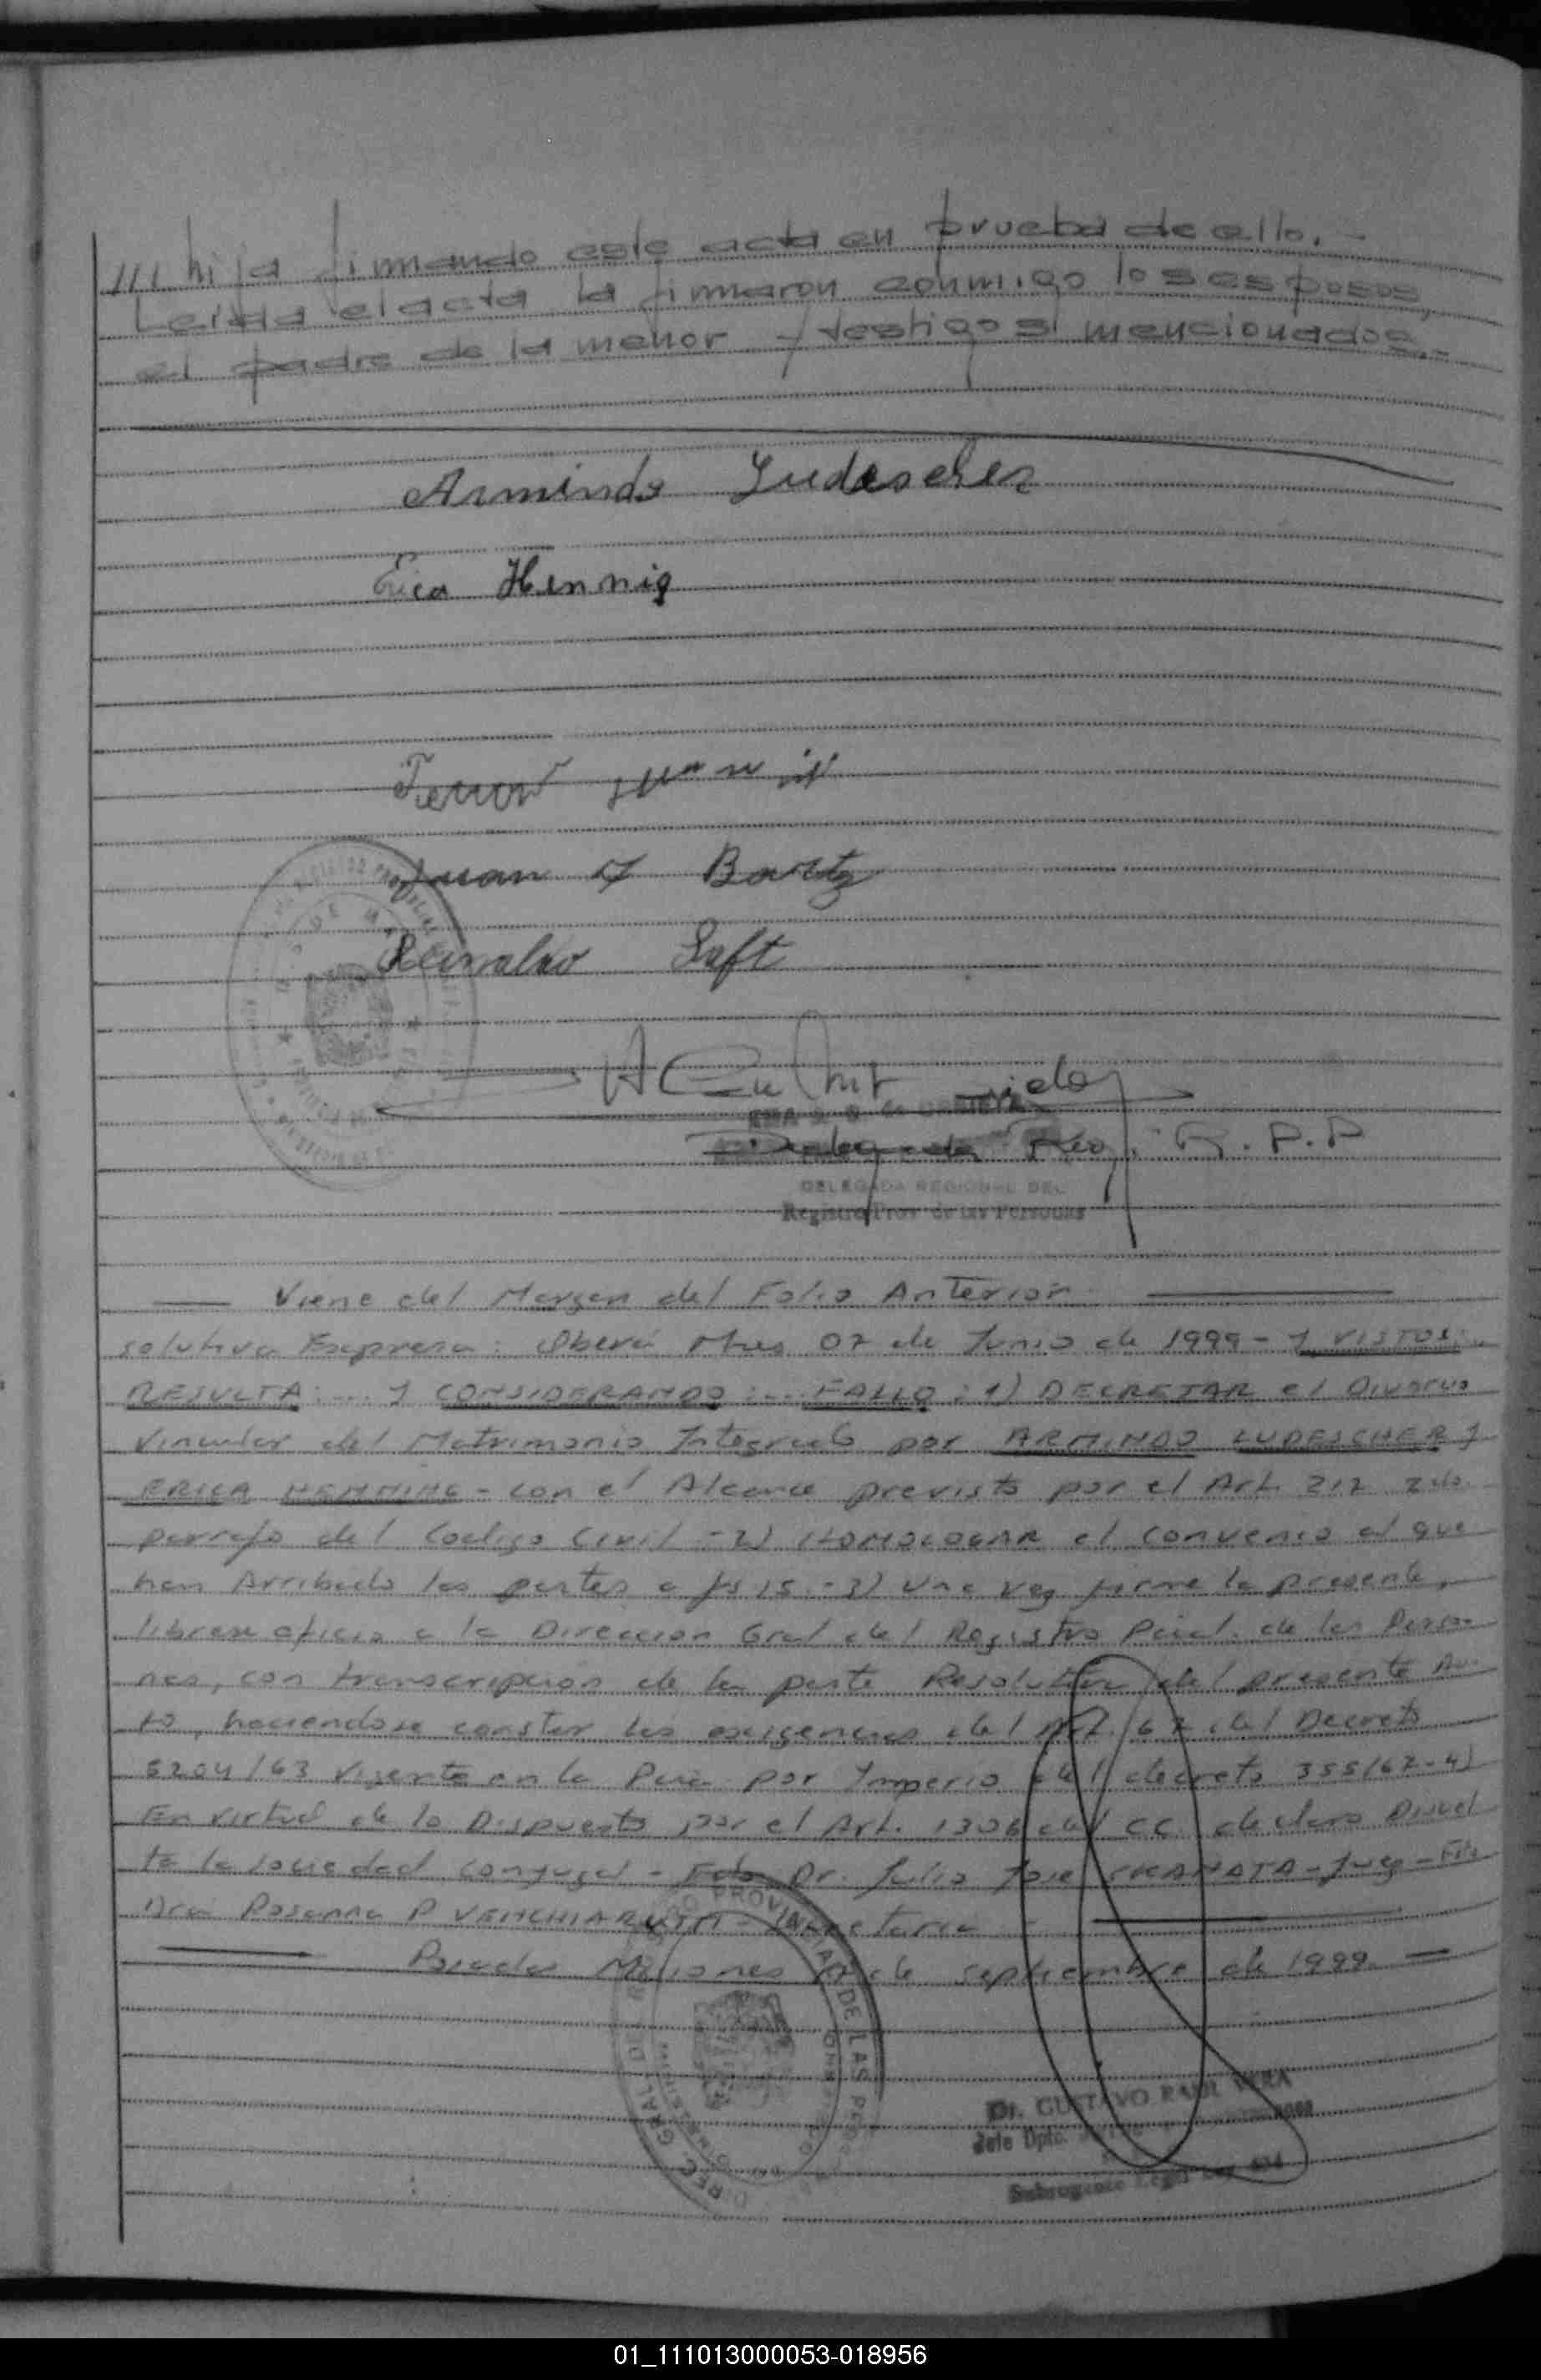 /// hija firmando este acta en prueba de ello.-
Leída el acta la firmaron conmigo los esposos,
el padre de la menor y testigos mencionados.-
Armindo Ludescher
Erica Hennig
Juan Bartz
Reinaldo Saft
Delegada Reg. R.P.P
DELEGADA REGIONAL DEL
Registro Prov de las Personas
Viene del Margen del Folio Anterior
solutiva Expresa: Oberá Mnes 07 de Junio de 1999 - Y VISTOS:..
RESULTA:... Y CONSIDERANDO:... FALLO: 1) DECRETAR el Divorcio
Vincular del Matrimonio Integrado por ARMINDO LUDESCHER Y
ERICA HENNING - con el Alcance previsto por el Art. 217 2do.
parrafo del Codigo Civil - 2) HOMOLOGAR el convenio al que
han Arribado las partes a fs 15.- 3) Una vez firme la presente,
librese oficio a la Direccion Gral del Registro Pcial. de las Perso-
nas, con transcripcion de la parte Resolutiva del presente Au-
to, haciendose constar las exigencias del Art. 67 del Decreto
5204/63 vigente en la Pcia. por Imperio del decreto 355/67-4)
En virtud de lo Dispuesto por el Art. 1306 del CC. declaro Disuel
ta la sociedad conyugal - Fdo Dr. Julio Jose - Juez - Fdo
Dra. Rosanna P - Secretaria
Posadas Misiones de septiembre de 1999
Dr. GUSTAVO RAUL VERA
Jefe Dpto.
Subrogante Legal
01_111013000053-018956